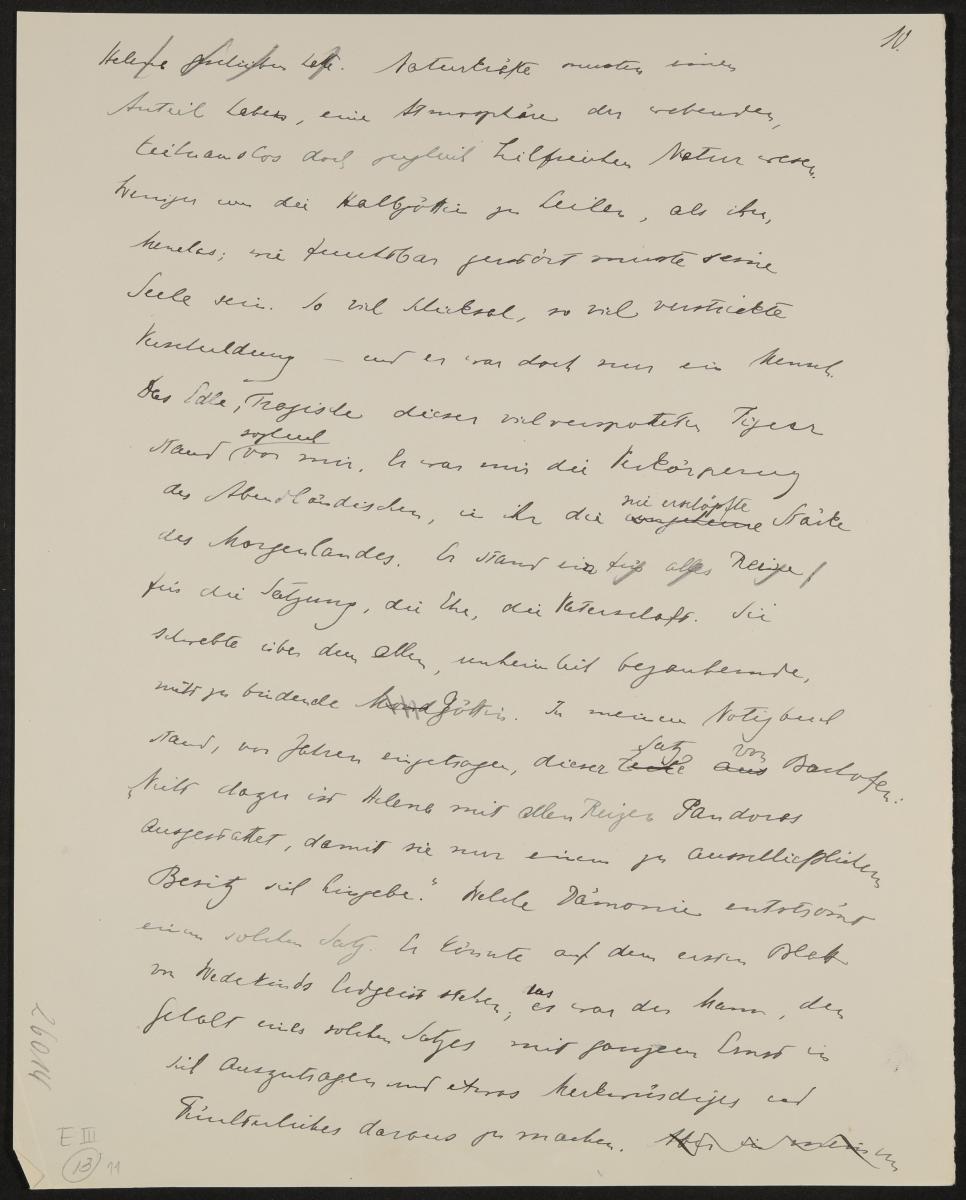 10.
Helena geschieben hatte. Naturkräfte mussten einen
Anteil haben, eine Atmosphäre der webenden,
teilnamslos doch zugleich hilfreichen Naturwesen.
Weniger um die Halbgöttin zu heilen, als ihn,
Menelas; wie furchtbar zerstört musste seine
Seele sein. So viel Schicksal, so viel verstrickte
Verschuldung – und er war doch nur ein Mensch.
Das Edle, Tragische dieser vielverspotteten Figur
sogleich
stand vor mir. Er war mir die Verkörperung
des Abendländischen, in ihr die nie erschöpfte ungeheure Stärke
des Morgenlandes. Er stand ein für alles Reine,
für die Satzung, die Ehe, die Vaterschaft. Sie
schwebte über dem allen, unheimlich bezaubernde,
nicht zu bindende Mond Göttin. In meinem Notizbuch
stand, vor Jahren eingetragen, dieser Satz von aus Bachofen:
„Nicht dazu ist Helena mit allen Reizen Pandoras
ausgestattet, damit sie nur einem zu ausschließlichem
Besitz sich hingebe." Welche Dämonie entströmt
einem solchen Satz. Er könnte auf dem ersten Blatt
von Wedekinds Erdgeist stehen; das es war der Mann, den
Gehalt eines solchen Satzes mit ganzem Ernst in
sich auszutragen und etwas Merkwürdiges und
Künstlerisches daraus zu machen. Aber
26014
E III
13 11